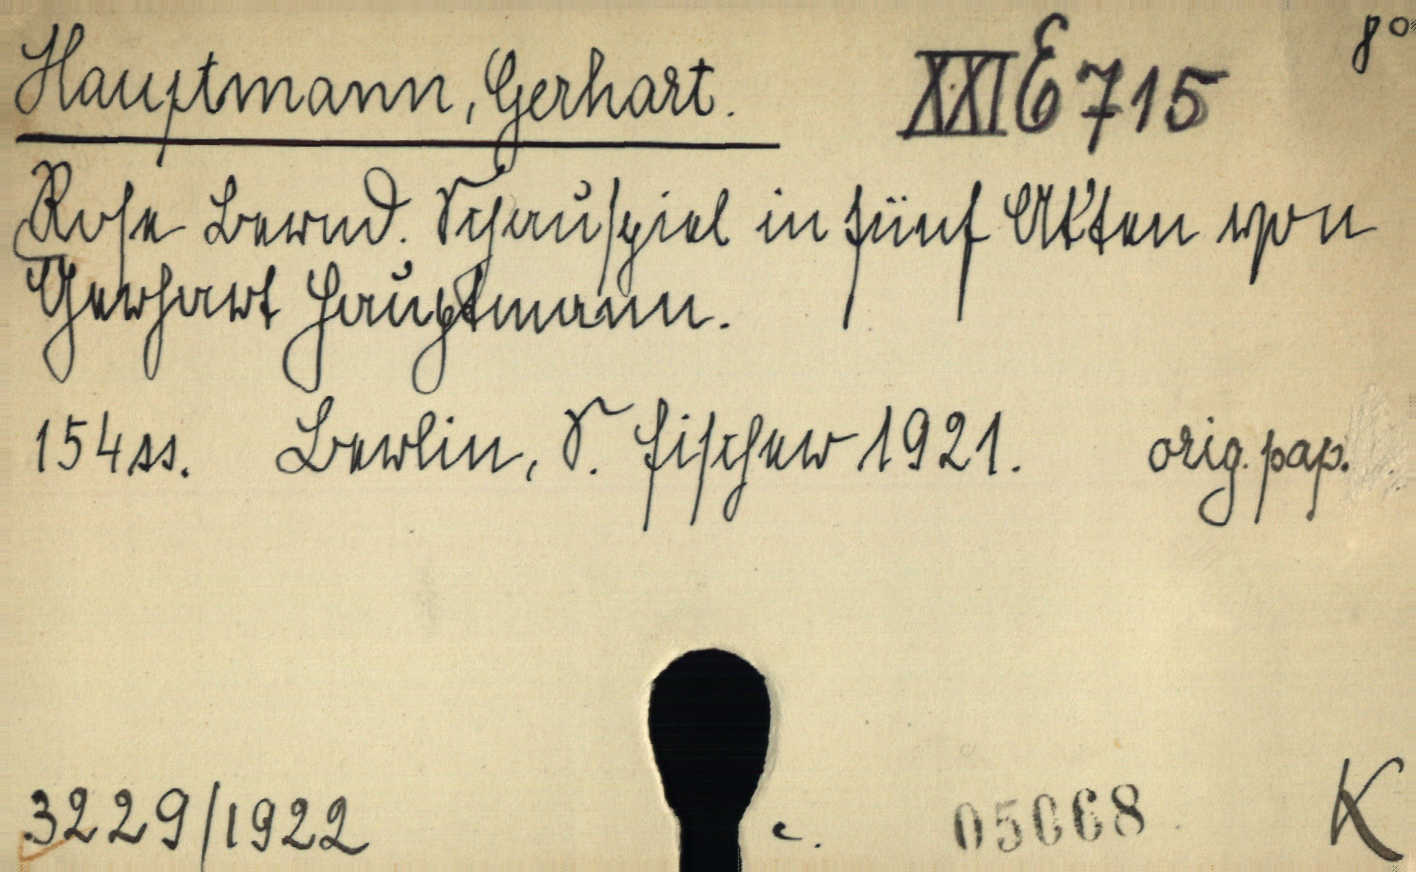 Hauptmann, Gerhart. XXI E 715 8°
Rose Bernd. Schauspiel in fünf Akten von
Gerhart Hauptmann.
154 ss. Berlin, S. Fischer 1921. orig. pap.
3229/1922 c. 05068 K